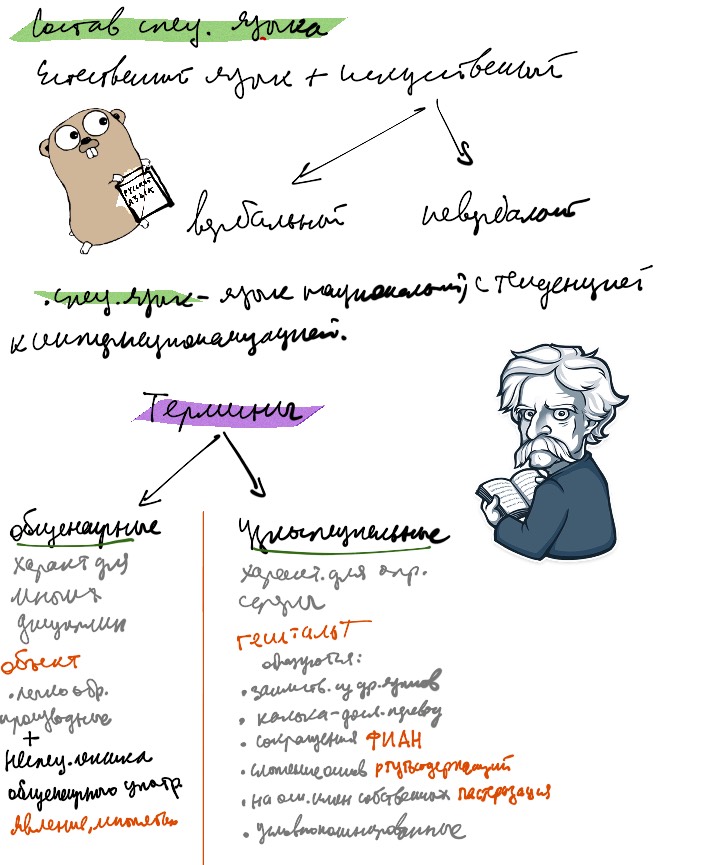 Состав спец. языка
Естественный язык + искуственный
РУССКИЙ
ЯЗЫК
вербальный
невербалый
• спец. язык - язык национальный, с тенденцией
к интернационализацией.
Термины
общенаучные
характ для
многих
дисциплин
объект
• легко обр.
производные
+
неспец. лексика
общенаучного употр.
явление,
узкоспециальные
характ. для опр.
сферы
гештальт
образуются:
• заимств. из др. языков
• калька - досл. перевод
• сокращения ФИАН
• сложение основ ртутьсодержащий
• на осн. имен собственных пастеризация